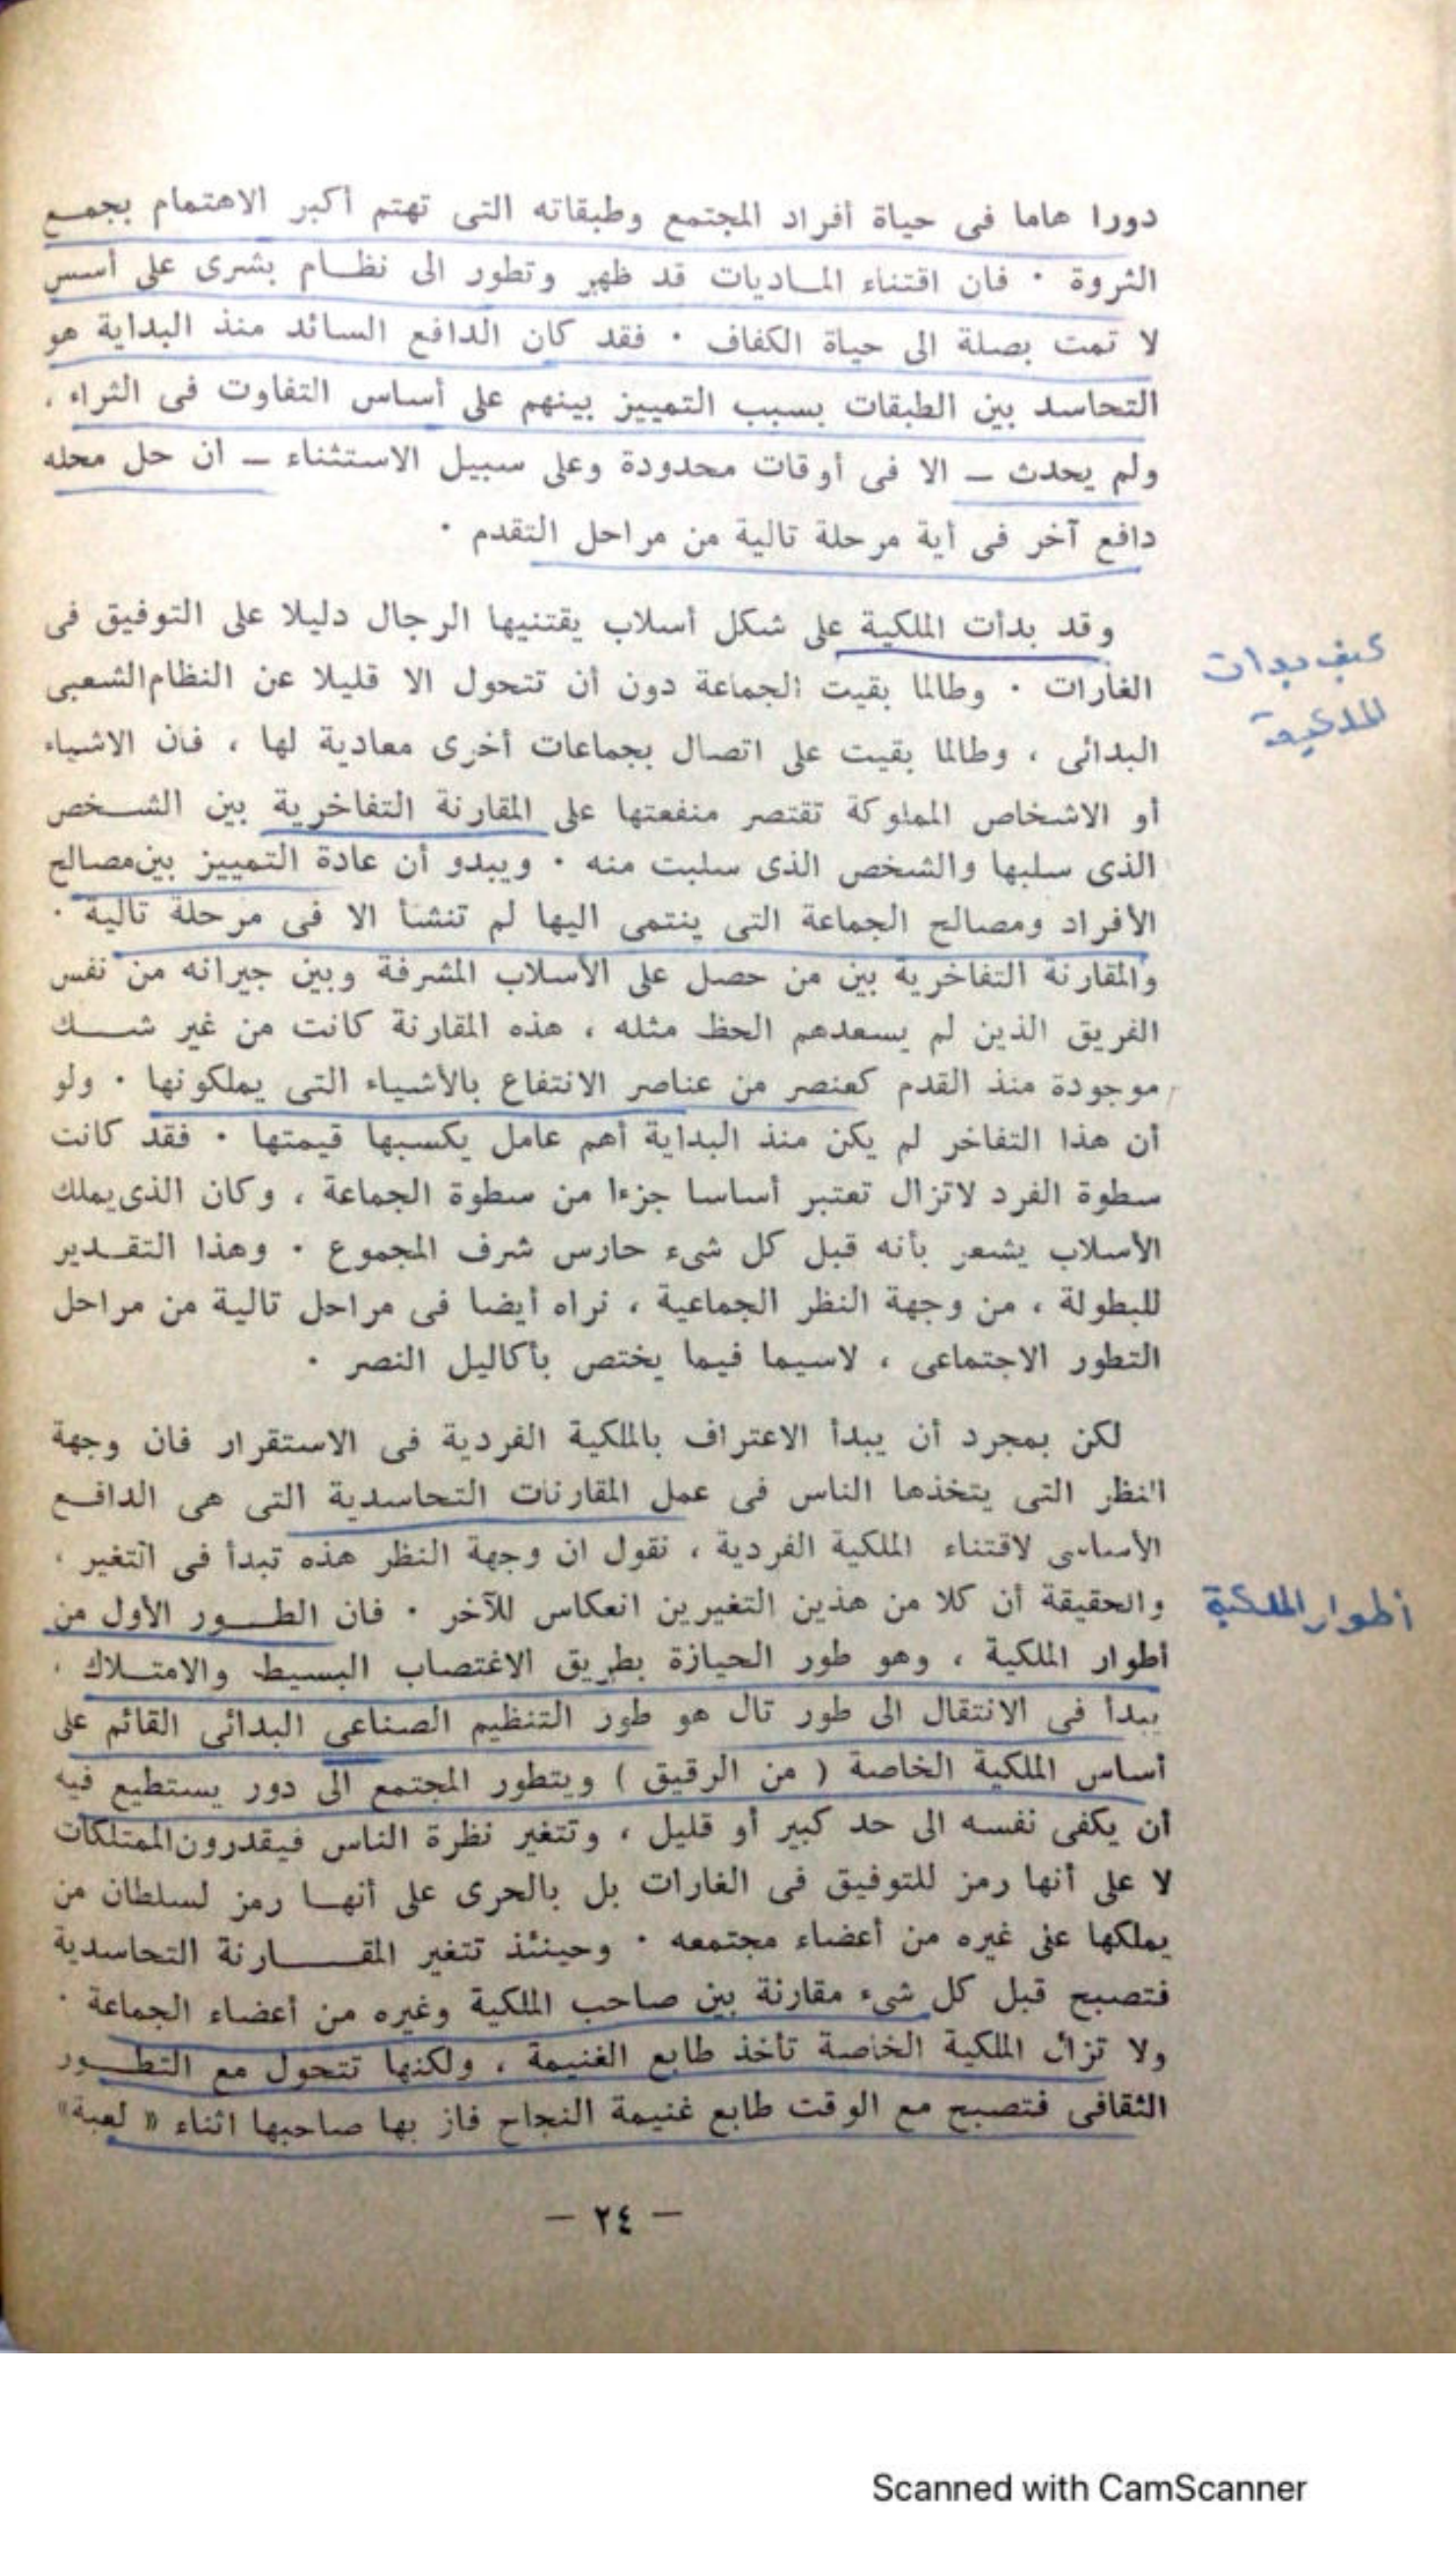 دورا هاما فى حياة أفراد المجتمع وطبقاته التى تهتم أكبر الاهتمام بجمـع
الثروة ٠ فان اقتناء المـاديات قد ظهر وتطور الى نظـام بشرى على أسس
لا تمت بصلة الى حياة الكفاف ٠ فقد كان الدافع السائد منذ البداية هو
التحاسد بين الطبقات بسبب التمييز بينهم على أساس التفاوت فى الثراء ،
ولم يحدث ــ الا فى أوقات محدودة وعلى سبيل الاستثناء ــ ان حل محله
دافع آخر فى أية مرحلة تالية من مراحل التقدم ٠
وقد بدأت الملكية على شكل أسلاب يقتنيها الرجال دليلا على التوفيق فى
كيف بدأت
الغارات ٠ وطالما بقيت الجماعة دون أن تتحول الا قليلا عن النظام الشعبى
الملكية
البدائى ، وطالما بقيت على اتصال بجماعات أخرى معادية لها ، فان الاشياء
أو الاشخاص المملوكة تقتصر منفعتها على المقارنة التفاخرية بين الشـخص
الذى سلبها والشخص الذى سلبت منه ٠ ويبدو أن عادة التمييز بين مصالح
الأفراد ومصالح الجماعة التى ينتمى اليها لم تنشأ الا فى مرحلة تالية ٠
والمقارنة التفاخرية بين من حصل على الأسلاب المشرفة وبين جيرانه من نفس
الفريق الذين لم يسعدهم الحظ مثله ، هذه المقارنة كانت من غير شــك
موجودة منذ القدم كعنصر من عناصر الانتفاع بالأشياء التى يملكونها ٠ ولو
أن هذا التفاخر لم يكن منذ البداية أهم عامل يكسبها قيمتها ٠ فقد كانت
سطوة الفرد لاتزال تعتبر أساسا جزءا من سطوة الجماعة ، وكان الذى يملك
الأسلاب يشعر بأنه قبل كل شىء حارس شرف المجموع ٠ وهذا التقـدير
للبطولة ، من وجهة النظر الجماعية ، نراه أيضا فى مراحل تالية من مراحل
التطور الاجتماعى ، لاسيما فيما يختص بأكاليل النصر ٠
لكن بمجرد أن يبدأ الاعتراف بالملكية الفردية فى الاستقرار فان وجهة
النظر التى يتخذها الناس فى عمل المقارنات التحاسدية التى هى الدافـع
الأساسى لاقتناء الملكية الفردية ، نقول ان وجهة النظر هذه تبدأ فى التغير ،
والحقيقة أن كلا من هذين التغيرين انعكاس للآخر ٠ فان الطـور الأول من
أطوار الملكية
أطوار الملكية ، وهو طور الحيازة بطريق الاغتصاب البسيط والامتـلاك ،
يبدأ فى الانتقال الى طور تال هو طور التنظيم الصناعى البدائى القائم على
أساس الملكية الخاصة ( من الرقيق ) ويتطور المجتمع الى دور يستطيع فيه
أن يكفى نفسه الى حد كبير أو قليل ، وتتغير نظرة الناس فيقدرون الممتلكات
لا على أنها رمز للتوفيق فى الغارات بل بالحرى على أنهـا رمز لسلطان من
يملكها على غيره من أعضاء مجتمعه ٠ وحينئذ تتغير المقـــارنة التحاسدية
فتصبح قبل كل شىء مقارنة بين صاحب الملكية وغيره من أعضاء الجماعة ٠
ولا تزال الملكية الخاصة تأخذ طابع الغنيمة ، ولكنها تتحول مع التطـور
الثقافى فتصبح مع الوقت طابع غنيمة النجاح فاز بها صاحبها اثناء « لعبة»
— ٢٤ —
Scanned with CamScanner